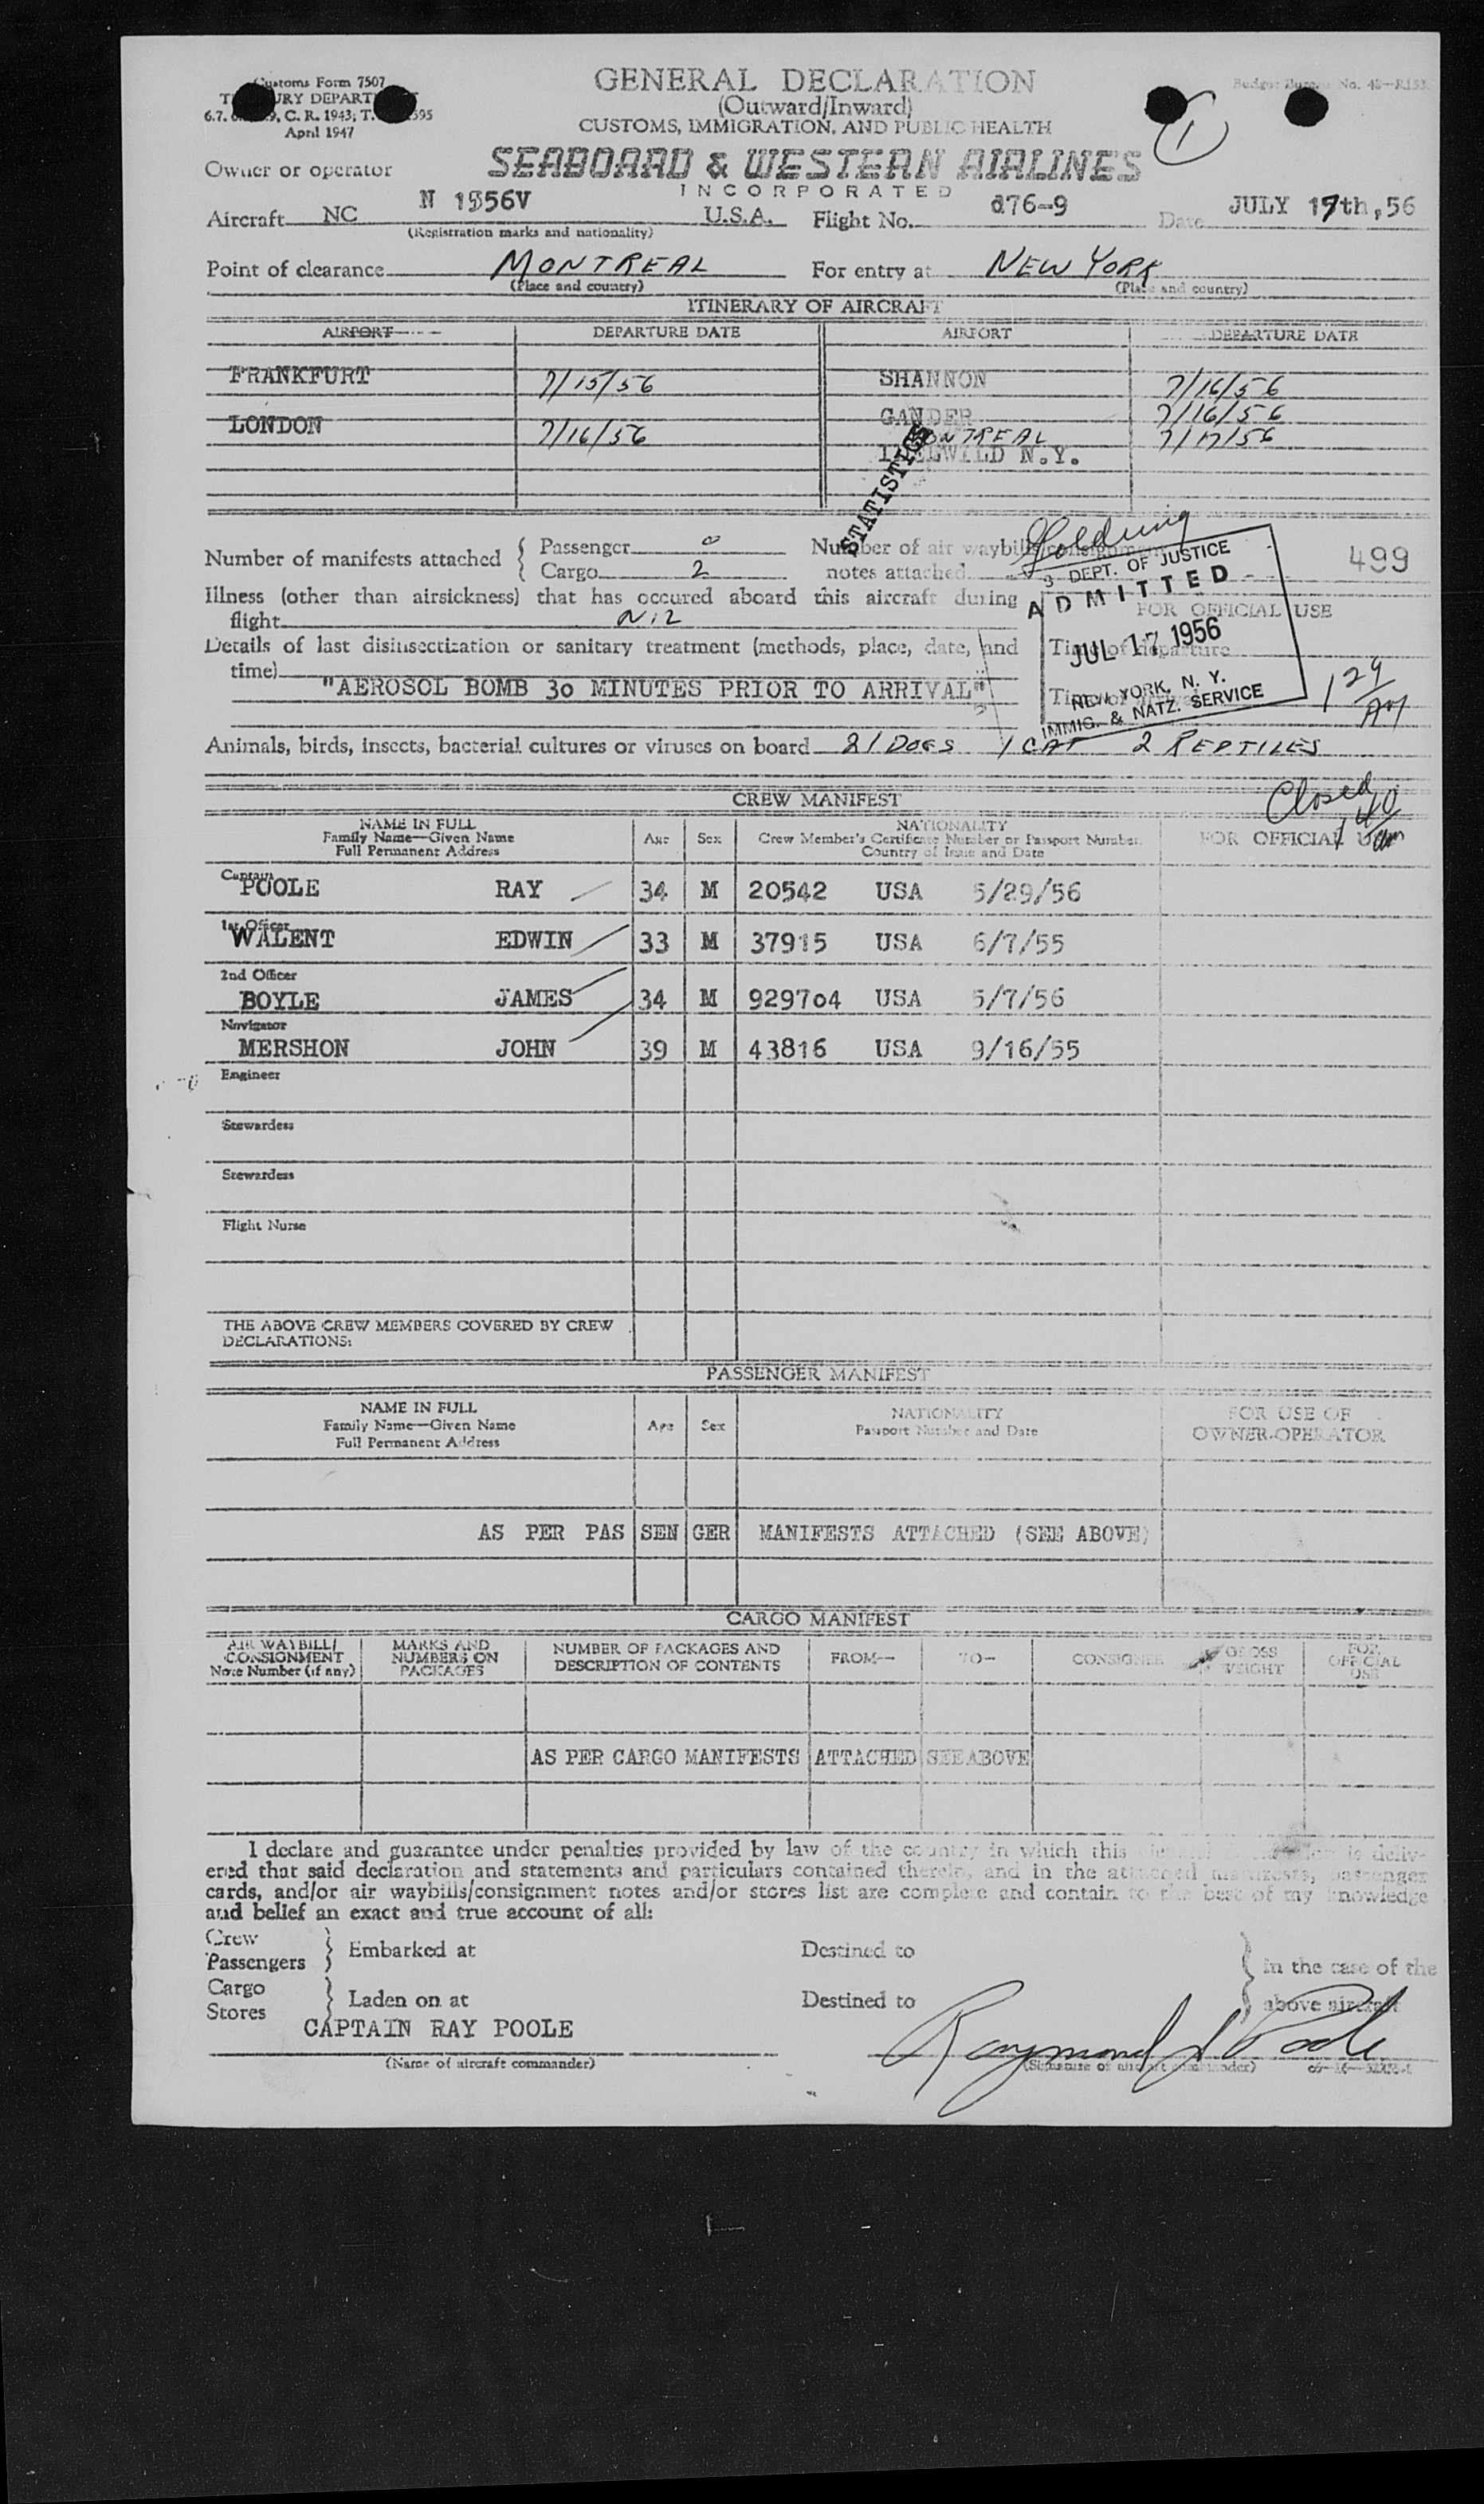 Customs Form 7507
GENERAL DECLARATION
(Outward/Inward)
CUSTOMS, IMMIGRATION, AND PUBLIC HEALTH
April 1947
1
Owner or operator SEABOARD & WESTERN AIRLINES
INCORPORATED
Aircraft NC N 1S56V U.S.A. Flight No. 276-9 Date JULY 17th, 56
(Registration marks and nationality)
Point of clearance MONTREAL For entry at NEW YORK
(Place and country) (Place and country)
ITINERARY OF AIRCRAFT
AIRPORT DEPARTURE DATE AIRPORT DEPARTURE DATE
FRANKFURT 7/15/56 SHANNON 7/16/56
GANDER 7/16/56
LONDON 7/16/56 MONTREAL 7/17/56
IDLEWILD N.Y.
STATISTICS
Number of manifests attached { Passenger 0 Number of air waybills/consignment
Cargo 2 notes attached 499
DEPT. OF JUSTICE
ADMITTED
JUL 17 1956
NEW YORK, N. Y.
IMMIG. & NATZ. SERVICE
Illness (other than airsickness) that has occured aboard this aircraft during FOR OFFICIAL USE
flight Nil
Details of last disinsectization or sanitary treatment (methods, place, date, and Time of departure
time) "AEROSOL BOMB 30 MINUTES PRIOR TO ARRIVAL" 1 29 AM
Animals, birds, insects, bacterial cultures or viruses on board 21 DOGS 1 CAT 2 REPTILES
Closed 1 40 am
CREW MANIFEST
NAME IN FULL Age Sex NATIONALITY FOR OFFICIAL USE
Family Name—Given Name Crew Member's Certificate Number or Passport Number
Full Permanent Address Country of Issue and Date
Captain
POOLE RAY 34 M 20542 USA 5/29/56
1st Officer
WALENT EDWIN 33 M 37915 USA 6/7/55
2nd Officer
BOYLE JAMES 34 M 929704 USA 5/7/56
Navigator
MERSHON JOHN 39 M 43816 USA 9/16/55
Engineer
Stewardess
Stewardess
Flight Nurse
THE ABOVE CREW MEMBERS COVERED BY CREW
DECLARATIONS:
PASSENGER MANIFEST
NAME IN FULL Age Sex NATIONALITY FOR USE OF
Family Name—Given Name Passport Number and Date OWNER-OPERATOR
Full Permanent Address
AS PER PAS SEN GER MANIFESTS ATTACHED (SEE ABOVE)
CARGO MANIFEST
AIR WAYBILL/ MARKS AND NUMBER OF PACKAGES AND FROM— TO— CONSIGNEE GROSS FOR
CONSIGNMENT NUMBERS ON DESCRIPTION OF CONTENTS WEIGHT OFFICIAL
Note Number (if any) PACKAGES USE
AS PER CARGO MANIFESTS ATTACHED SEE ABOVE
I declare and guarantee under penalties provided by law of the country in which this is deliv-
ered that said declaration and statements and particulars contained therein, and in the attached manifests, passenger
cards, and/or air waybills/consignment notes and/or stores list are complete and contain to the best of my knowledge
and belief an exact and true account of all:
Crew
Passengers } Embarked at Destined to } in the case of the
Cargo
Stores } Laden on at Destined to above aircraft
CAPTAIN RAY POOLE Raymond J Poole
(Name of aircraft commander) (Signature of aircraft commander)